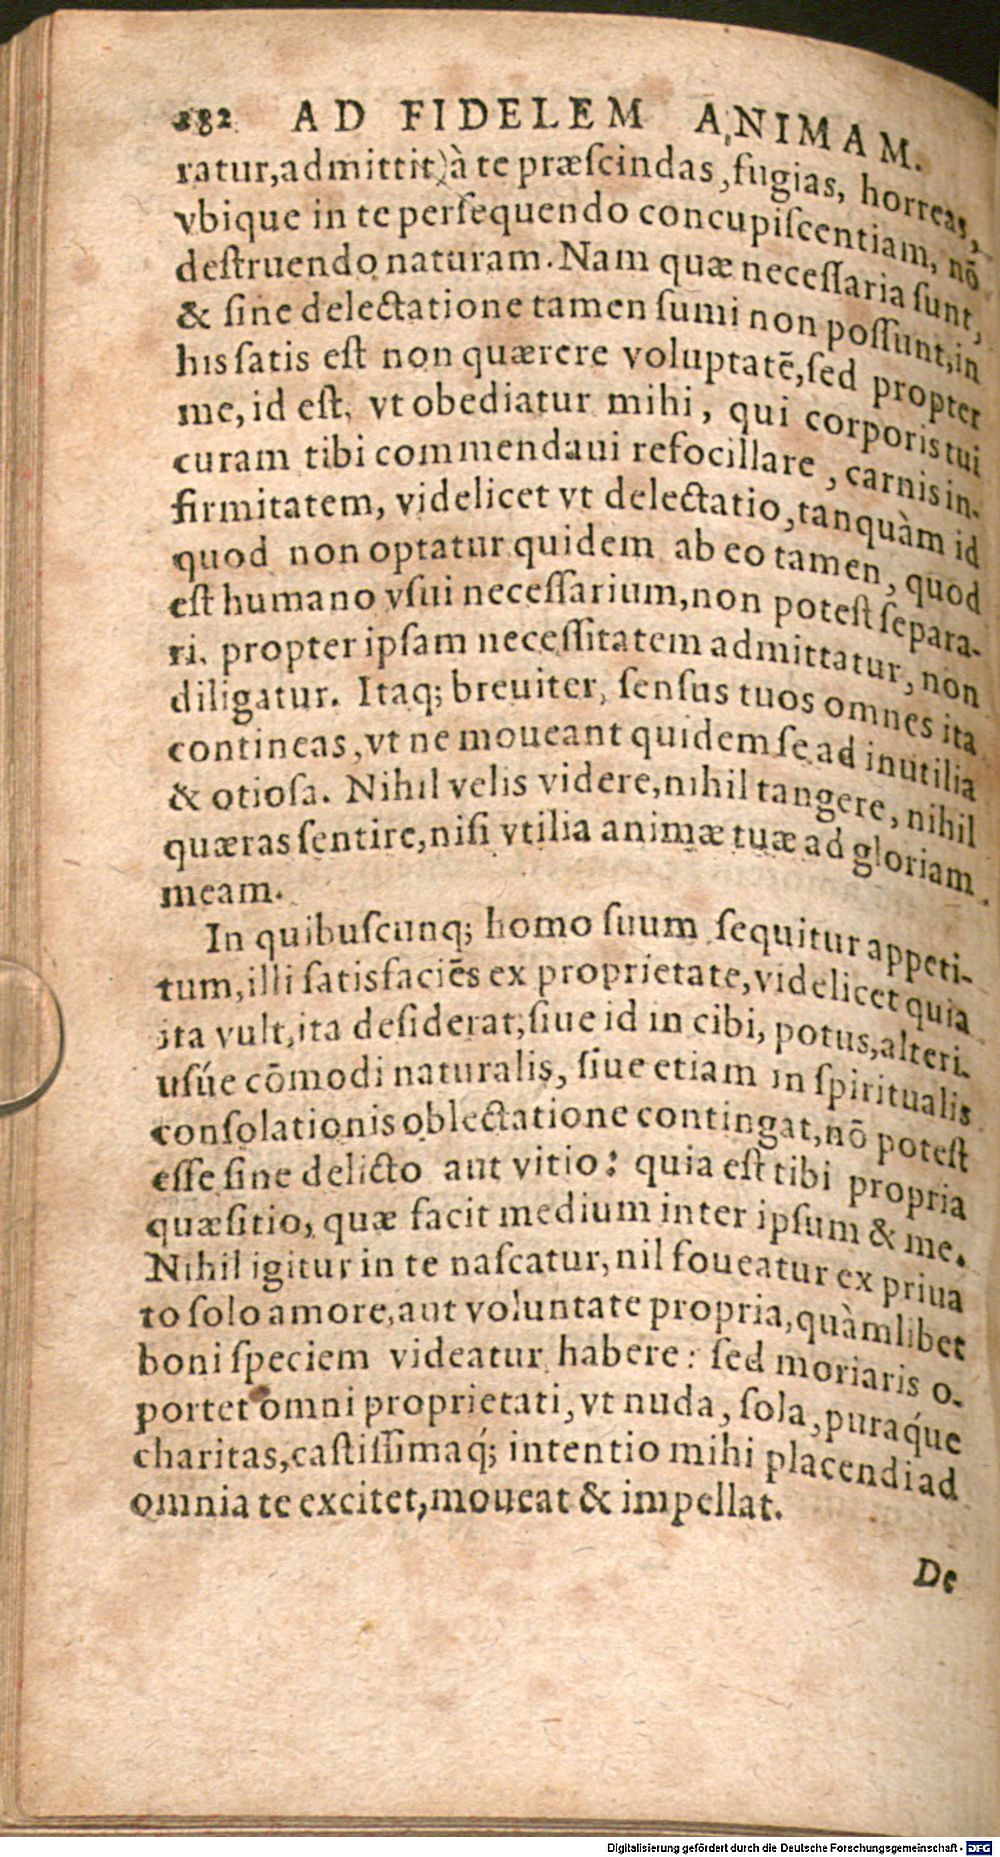 282 AD FIDELEM ANIMAM.
ratur, admittit) à te præſcindas, fugias, horreas,
vbique in te perſequendo concupiſcentiam, nō
deſtruendo naturam. Nam quæ neceſſaria ſunt,
& ſine delectatione tamen ſumi non poſſunt, in
his ſatis eſt non quærere voluptatē, ſed propter
me, id eſt, vt obediatur mihi, qui corporis tui
curam tibi commendaui refocillare, carnis in-
firmitatem, videlicet vt delectatio, tanquàm id
quod non optatur quidem ab eo tamen, quod
eſt humano vſui neceſſarium, non poteſt ſepara-
ri, propter ipſam neceſſitatem admittatur, non
diligatur. Itaq; breuiter, ſenſus tuos omnes ita
contineas, vt ne moueant quidem ſe ad inutilia
& otioſa. Nihil velis videre, nihil tangere, nihil
quæras ſentire, niſi vtilia animæ tuæ ad gloriam
meam.
In quibuſcunq; homo ſuum ſequitur appeti-
tum, illi ſatisfaciēs ex proprietate, videlicet quia
ita vult, ita deſiderat, ſiue id in cibi, potus, alteri-
uſúe cōmodi naturalis, ſiue etiam in ſpiritualis
conſolationis oblectatione contingat, nō poteſt
eſſe ſine delicto aut vitio: quia eſt tibi propria
quæſitio, quæ facit medium inter ipſum & me.
Nihil igitur in te naſcatur, nil foueatur ex priua
to ſolo amore, aut voluntate propria, quàmlibet
boni ſpeciem videatur habere: ſed moriaris o-
portet omni proprietati, vt nuda, ſola, puraq́ue
charitas, caſtiſſimaq́; intentio mihi placendi ad
omnia te excitet, moueat & impellat.
De
Digitalisierung gefördert durch die Deutsche Forschungsgemeinschaft - DFG